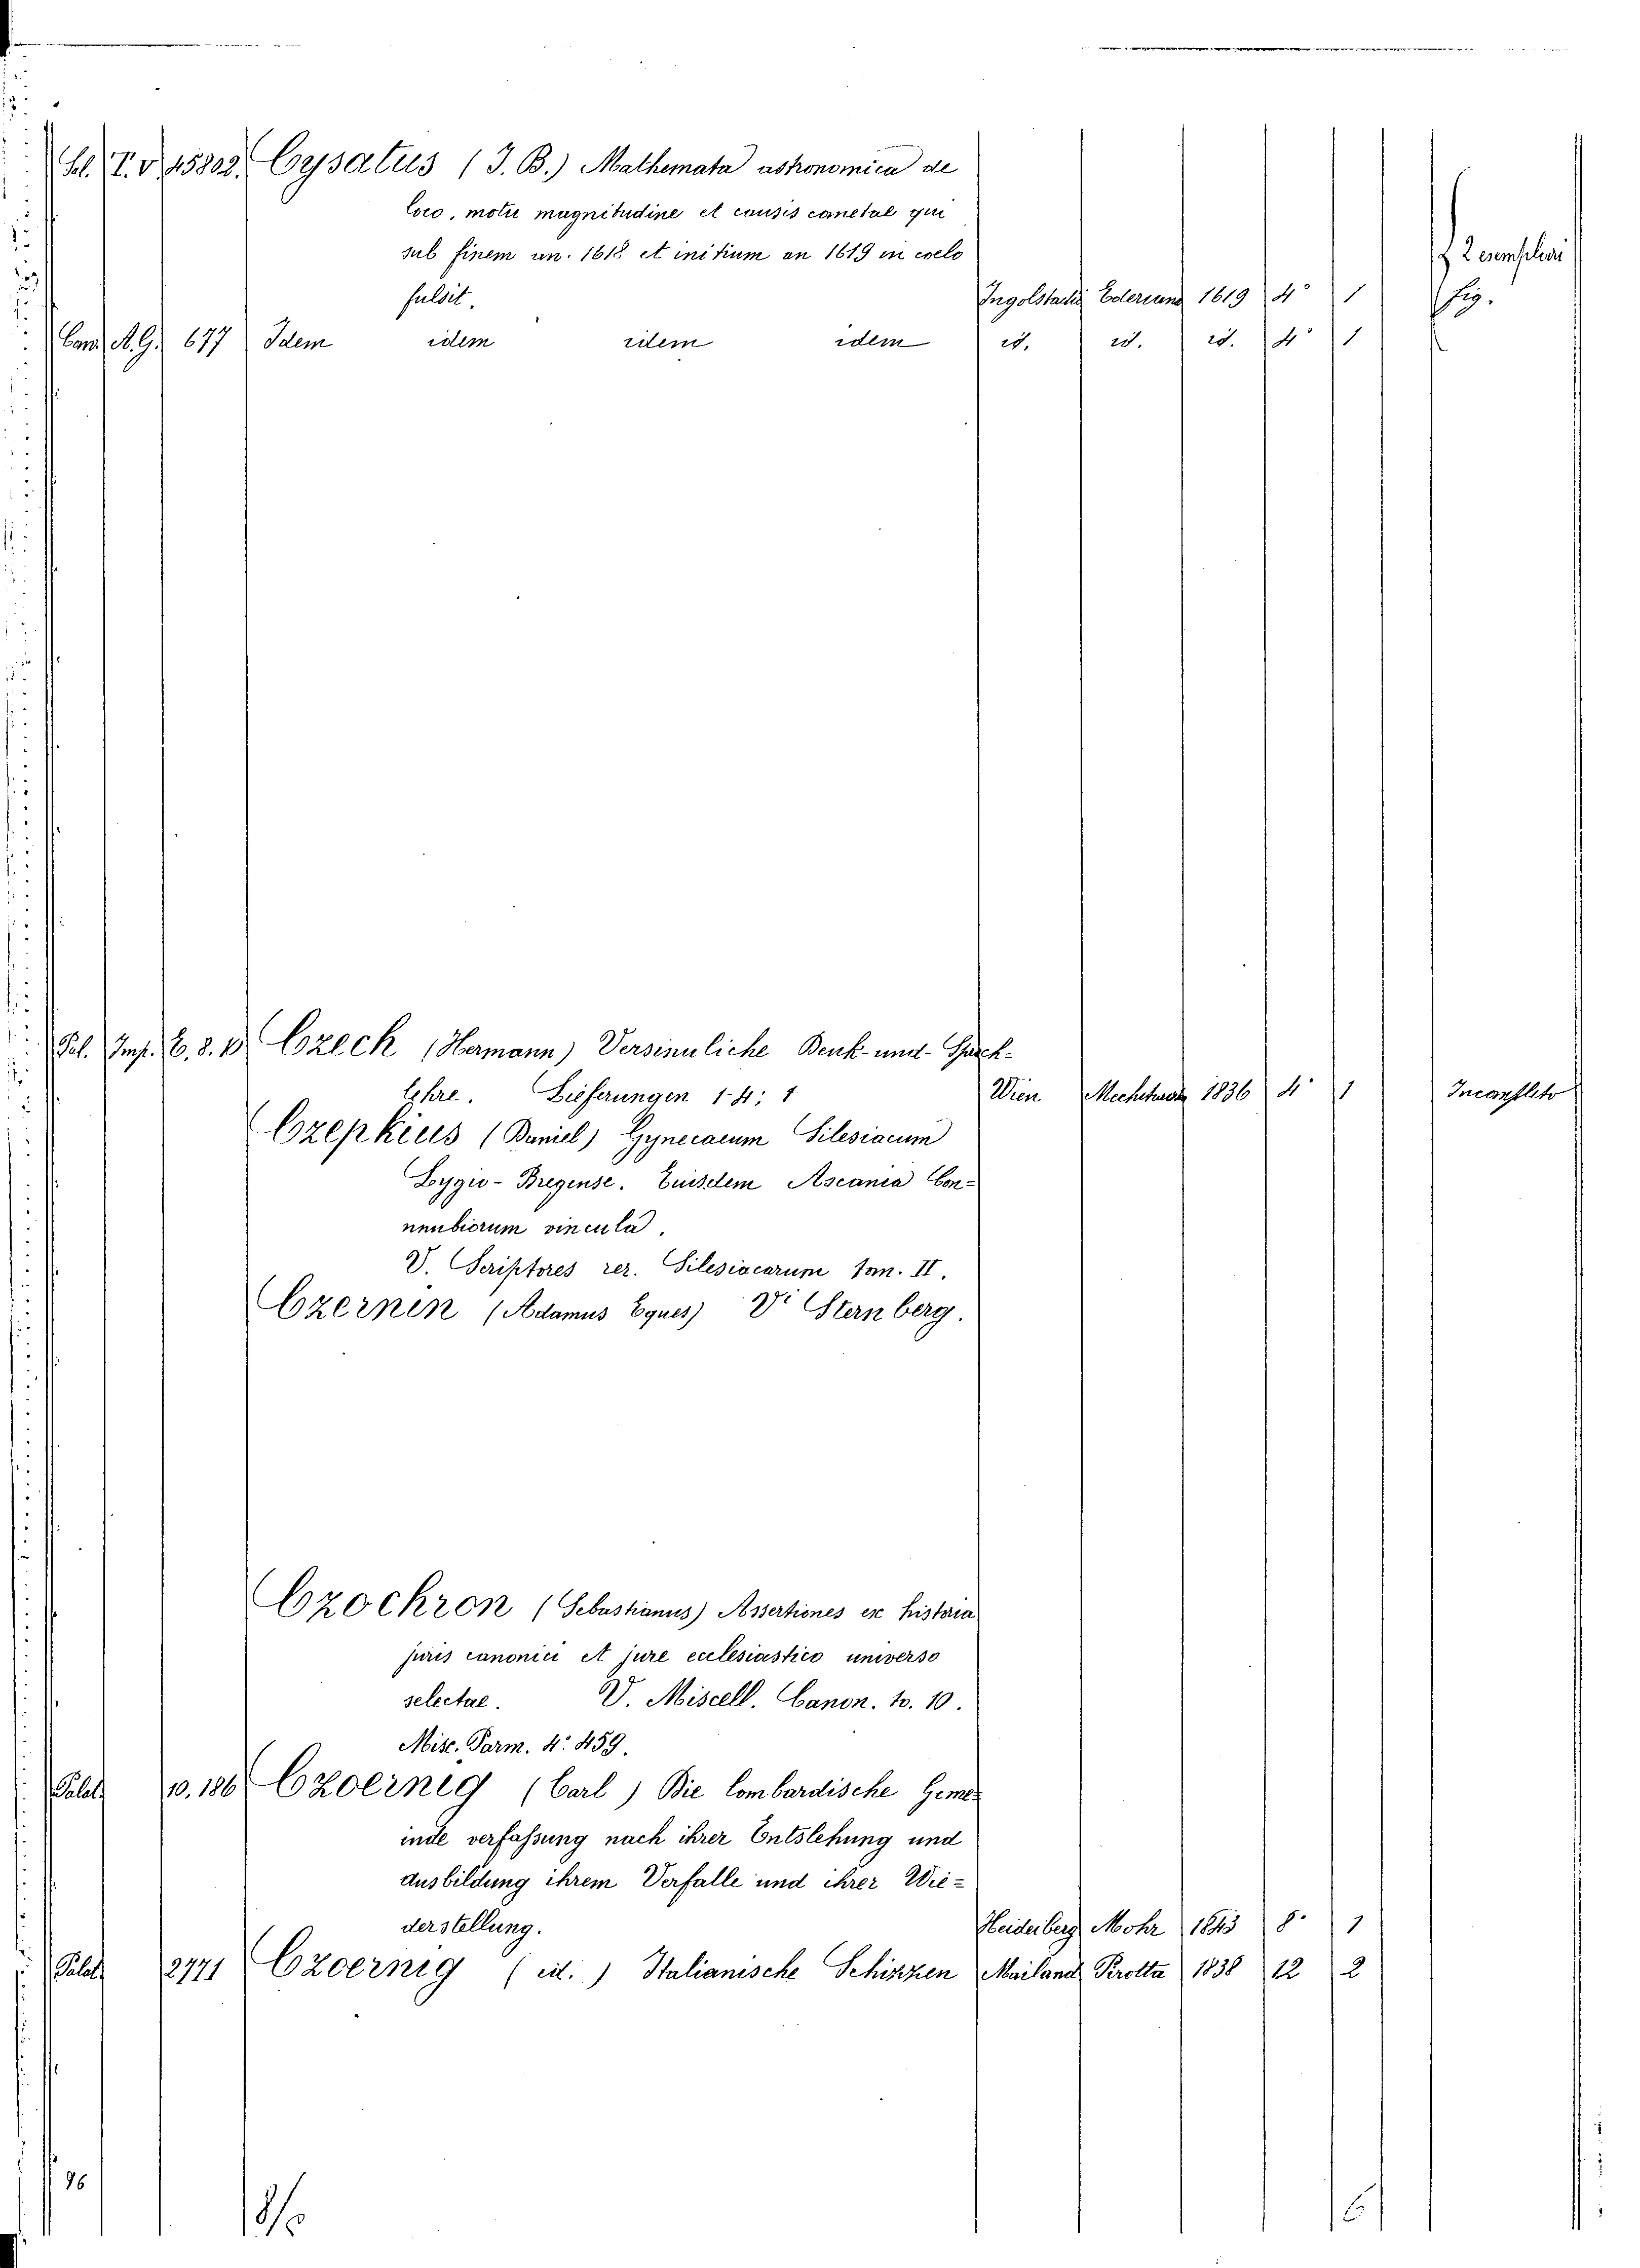 T. V 15802. Cysatus (J. B.) Mathemata astronomica de
loco, motu magnitudine et causis cometae qui
sub finem an. 1618 et initium an 1619 in coelo
2 esemplari
fulsit. Ingolstadii Ederiano 1619 4° 1 fig.
Cam. A. G. 677 Idem idem idem idem id. id. id. 4° 1
Pal. Imp. C. 8. V Czeck (Hermann) Versinnliche Denk- und Sprach-
lehre. Lieferungen 1-4; 1 Wien 1836 4° 1 Incompleto
Czepkius (Daniel) Gynecaeum Silesiacum
Lygio-Bregense. Euisdem Ascania Con-
nenbiorum vincula.
V. Scriptores rer. Silesiacarum tom. II.
Czernin (Adamus Eques) Vi Sternberg.
Czochron (Sebastianus) Assertiones ex historia
juris canonici et jure ecclesiastico universo
selectae. V. Miscell. Canon. to. 10.
Misc. Parm. 4° 459.
Palat 10.186 Czoernig (Carl) Die lombardische Geme-
inde verfassung nach ihrer Entstehung und
Ausbildung ihrem Verfalle und ihrer Wie-
derstellung. Heidelberg Mohr 1843 8° 1
Palat 2771 Czoernig (cit.) Italianische Schizzen Mailand Pirotta 1838 12 2
96
8/c
6